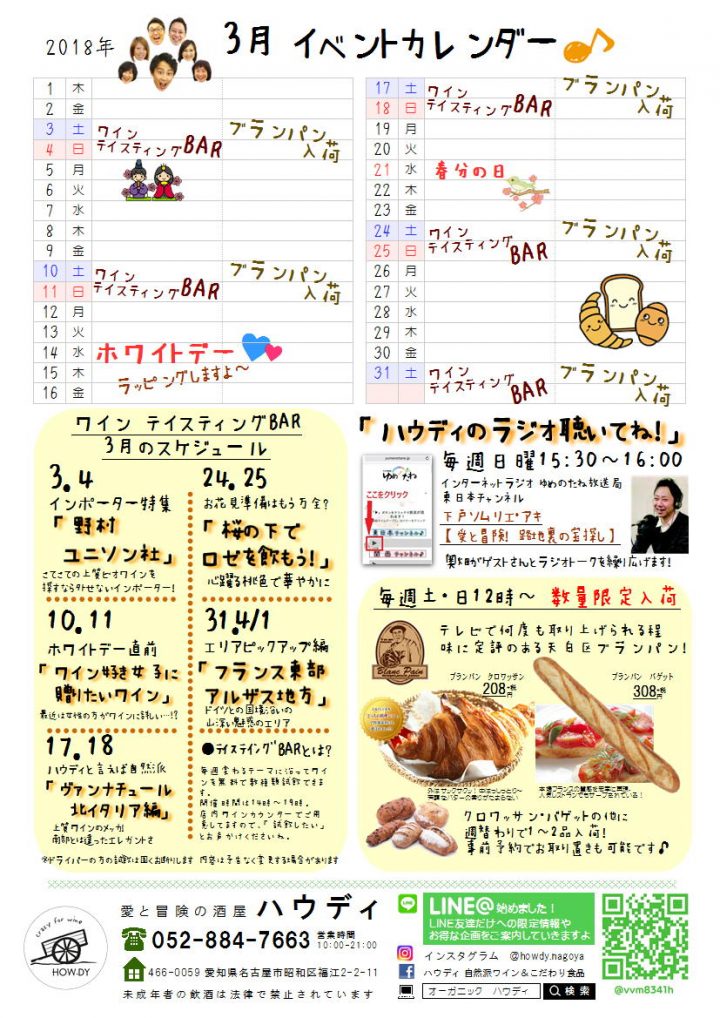 2018年
3月 イベントカレンダー
1 木
2 金
3 土 ワイン ブランパン
4 日 テイスティングBAR 入荷
5 月
6 火
7 水
8 木
9 金
10 土 ワイン ブランパン
11 日 テイスティングBAR 入荷
12 月
13 火
14 水 ホワイトデー
15 木 ラッピングしますよ〜
16 金
17 土 ワイン ブランパン
18 日 テイスティングBAR 入荷
19 月
20 火
21 水 春分の日
22 木
23 金
24 土 ワイン ブランパン
25 日 テイスティングBAR 入荷
26 月
27 火
28 水
29 木
30 金
31 土 ワイン ブランパン
テイスティングBAR 入荷
ワイン テイスティングBAR
3月のスケジュール
3.4
インポーター特集
「野村
ユニソン社」
さてさての上質ビオワインを
探すなら外せないインポーター!
10.11
ホワイトデー直前
「ワイン好き女子に
贈りたいワイン」
最近は女性の方がワインに詳しい…!?
17.18
ハウディと言えば自然派
「ヴァンナチュール
北イタリア編」
上質ワインのメッカ!
南部とは違ったエレガントさ
24.25
お花見準備はもう万全?
「桜の下で
ロゼを飲もう!」
心躍る桃色で華やかに
31.4/1
エリアピックアップ編
「フランス東部
アルザス地方」
ドイツとの国境沿いの
山深い魅惑のエリア
●テイスティングBARとは?
毎週変わるテーマに沿ってワイン
を無料で数種類試飲できます。
開催時間は14時〜19時。
店内ワインカウンターでご用
意してますので、「試飲したい」
とお声かけくださいね。
※ドライバーの方の試飲は固くお断りします 内容は予告なく変更する場合があります
「ハウディのラジオ聴いてね!」
毎週日曜15:30〜16:00
ゆめのたね
ここをクリック
インターネットラジオ ゆめのたね放送局
東日本チャンネル
下戸ソムリエ・アキ
【愛と冒険! 路地裏の宝探し】
奥田がゲストさんとラジオトークを繰り広げます!
毎週土・日12時〜 数量限定入荷
Blanc Pain
テレビで何度も取り上げられる程
味に定評のある天白区ブランパン!
ブランパン クロワッサン
208円+税
ブランパン バゲット
308円+税
クロワッサン・バゲットの他に
週替わりで1〜2品入荷!
事前予約でお取り置きも可能です♪
crazy for wine
HOW-DY
愛と冒険の酒屋 ハウディ
052-884-7663 営業時間
10:00-21:00
466-0059 愛知県名古屋市昭和区福江2-2-11
未成年者の飲酒は法律で禁止されています
LINE@始めました!
LINE友達だけへの限定情報や
お得な企画をご案内していきますよ
インスタグラム @howdy.nagoya
ハウディ 自然派ワイン&こだわり食品
オーガニック ハウディ 検索
@vvm8341h